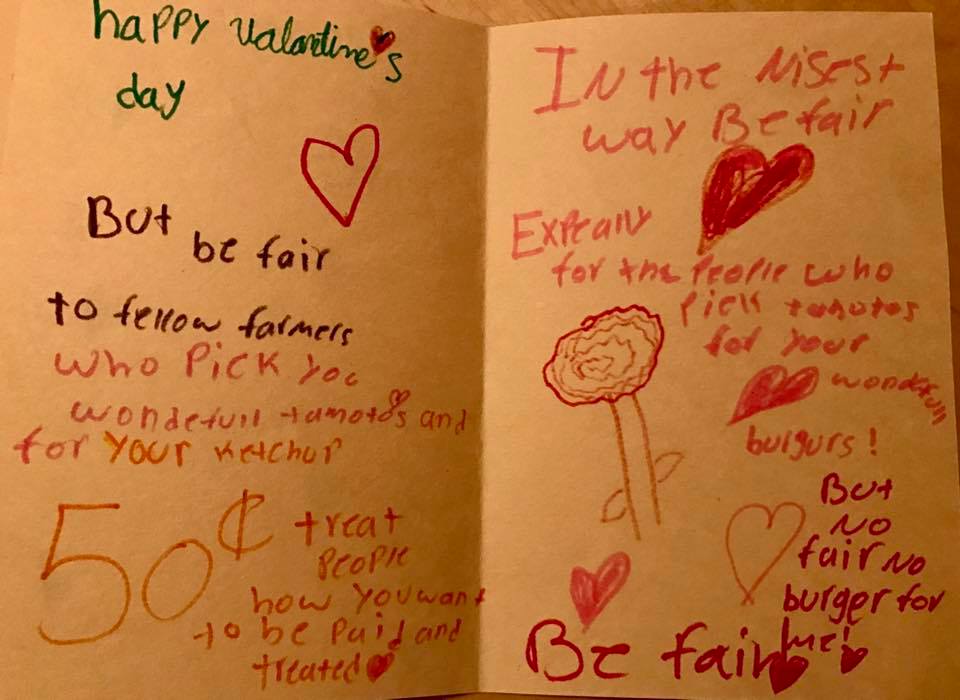 happy Valantine's
day
But be fair
to fellow farmers
who pick you
wondefull tamotos and
for your ketchup
50¢ treat
people
how you want
to be paid and
treated
In the nisest
way Be fair
Expeally
for the people who
pick tamotos
for your
wondefull
burgurs!
But
no
fair no
burger for
me!
Be fair